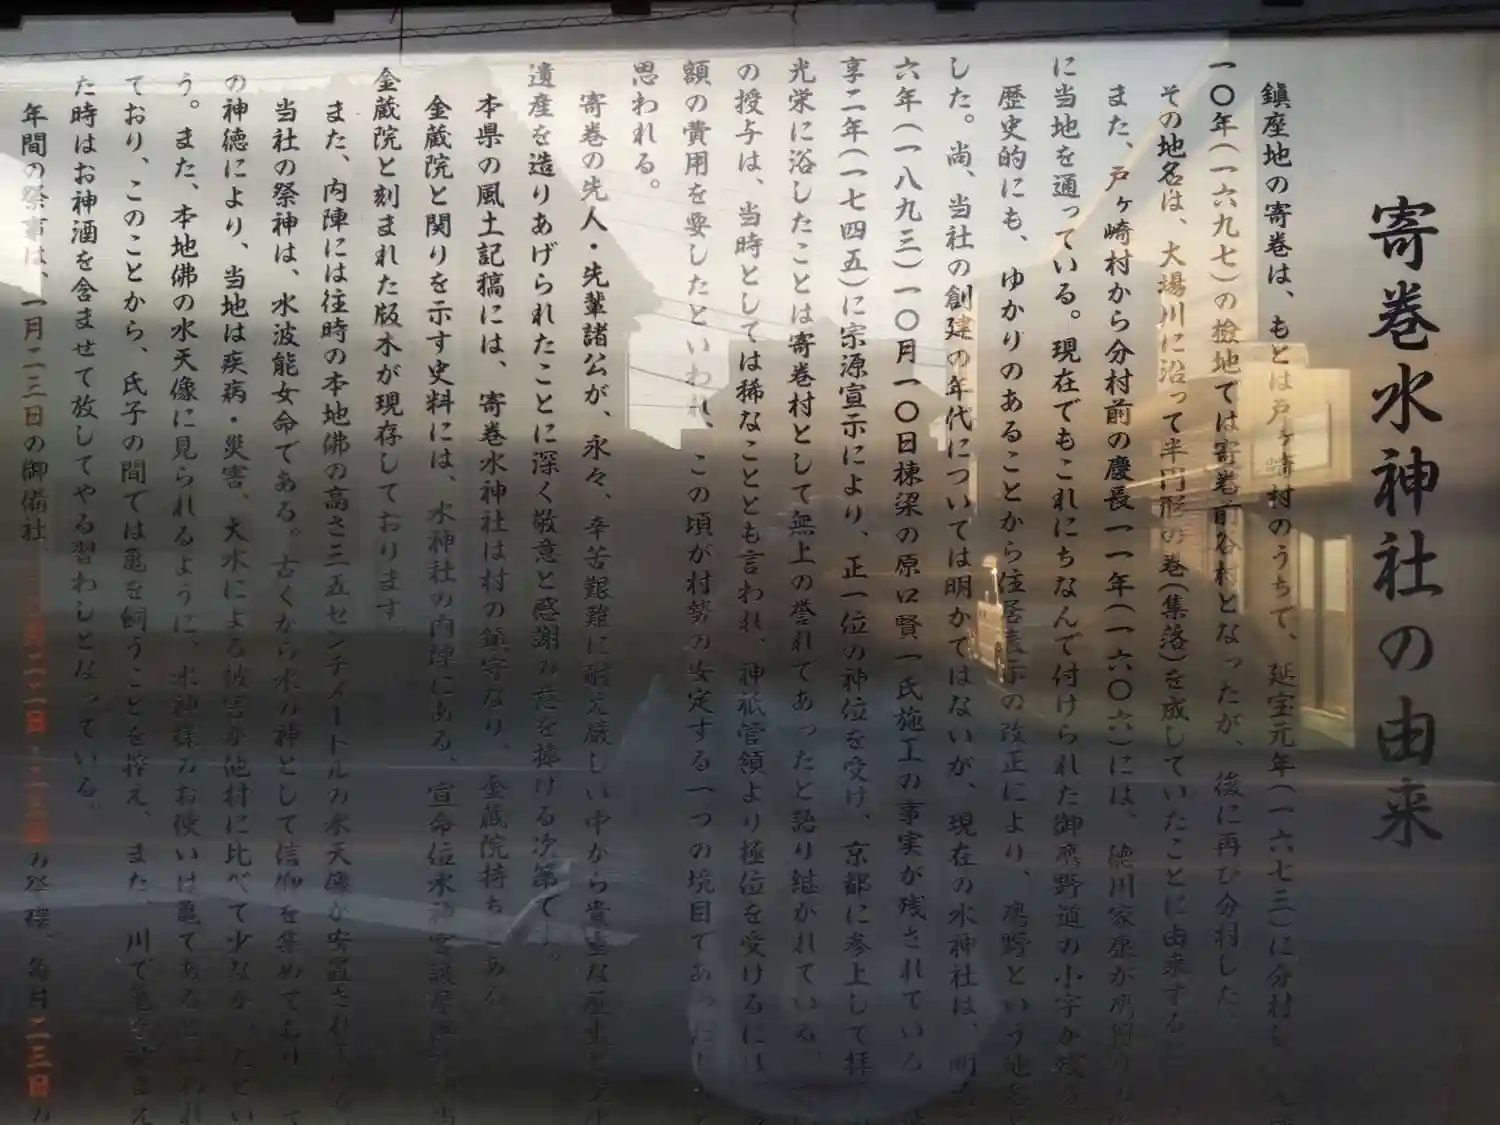 寄巻水神社の由来
鎮座地の寄巻は、もとは戸ヶ崎村のうちで、延宝元年(一六七三)に分村し
一〇年(一六九七)の検地では寄巻前谷村となったが、後に再び分村した。
その地名は、大場川に沿って半円形の巻(集落)を成していたことに由来する
また、戸ヶ崎村から分村前の慶長一一年(一六〇六)には、徳川家康が鷹狩りの
に当地を通っている。現在でもこれにちなんで付けられた御鷹野道の小字が残る
歴史的にも、ゆかりのあることから住居表示の改正により、鷹野という地名と
した。尚、当社の創建の年代については明かではないが、現在の水神社は、明治
六年(一八九三)一〇月一〇日棟梁の原口賢一氏施工の事実が残されている
享二年(一七四五)に宗源宣示により、正一位の神位を受け、京都に参上して拝
光栄に浴したことは寄巻村として無上の誉れであったと語り継がれている
の授与は、当時としては稀なこととも言われ、神祇管領より極位を受けるには
額の費用を要したといわれ、この頃が村勢の安定する一つの境目であった
思われる。
寄巻の先人・先輩諸公が、永々、辛苦艱難に耐え厳しい中から貴重な歴史と
遺産を造りあげられたことに深く敬意と感謝の意を捧げる次第です。
本県の風土記稿には、寄巻水神社は村の鎮守なり、金蔵院持ちとある
金蔵院と関りを示す史料には、水神社の内陣にある、宣命位水神宮
金蔵院と刻まれた版木が現存しております
また、内陣には往時の本地佛の高さ三五センチメートルの水天像が安置され
当社の祭神は、水波能女命である。古くから水の神として信仰を集めており、
の神徳により、当地は疾病・災害、大水による被害が他村に比べて少なか
う。また、本地佛の水天像に見られるように、水神様のお使いは亀であると
ており、このことから、氏子の間では亀を飼うことを控え、また、川で亀を
た時はお神酒を含ませて放してやる習わしとなっている。
年間の祭事は、一月二三日の御備社、 月二二日・二三日の祭礼、毎月二三日の